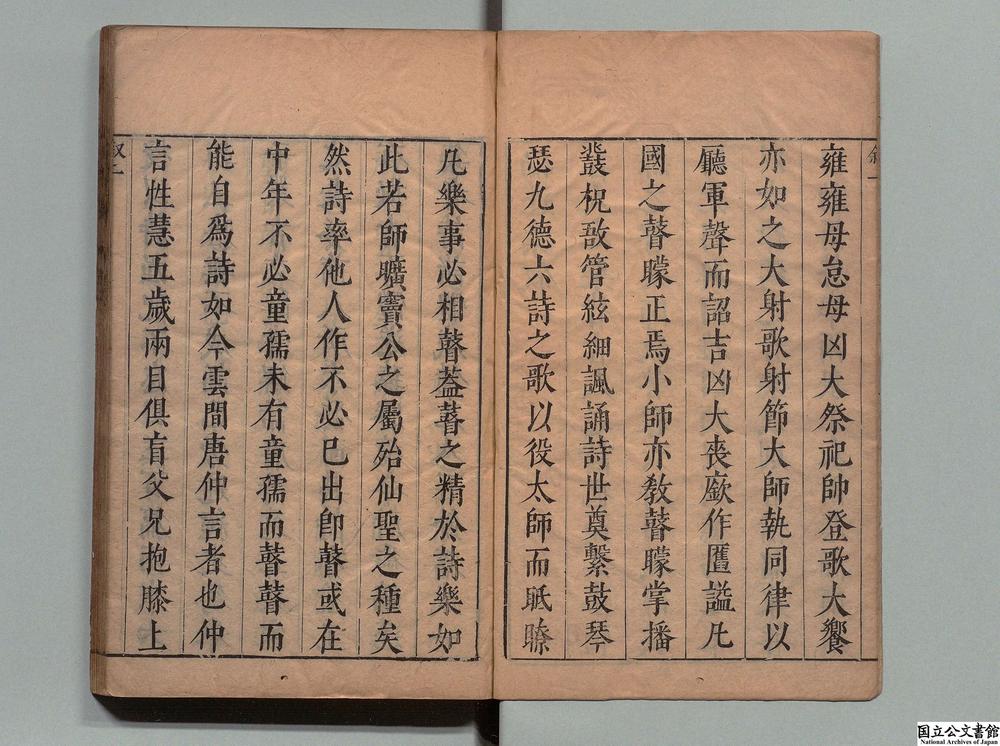 雍雍母怠母凶大祭祀帥登歌大饗
亦如之大射歌射節大師執同律以
廳軍聲而詔吉凶大喪廞作匶謚凡
國之瞽矇正焉小師亦教瞽矇掌播
鼗柷敔管絃細諷誦詩世奠繫鼓琴
瑟九德六詩之歌以役太師而眡瞭
凡樂事必相瞽葢瞽之精於詩樂如
此若師曠竇公之屬殆仙聖之種矣
然詩率他人作不必巳出卽瞽或在
中年不必童孺未有童孺而瞽瞽而
能自爲詩如今雲間唐仲言者也仲
言性慧五歲兩目俱盲父兄抱膝上
国立公文書館
National Archives of Japan